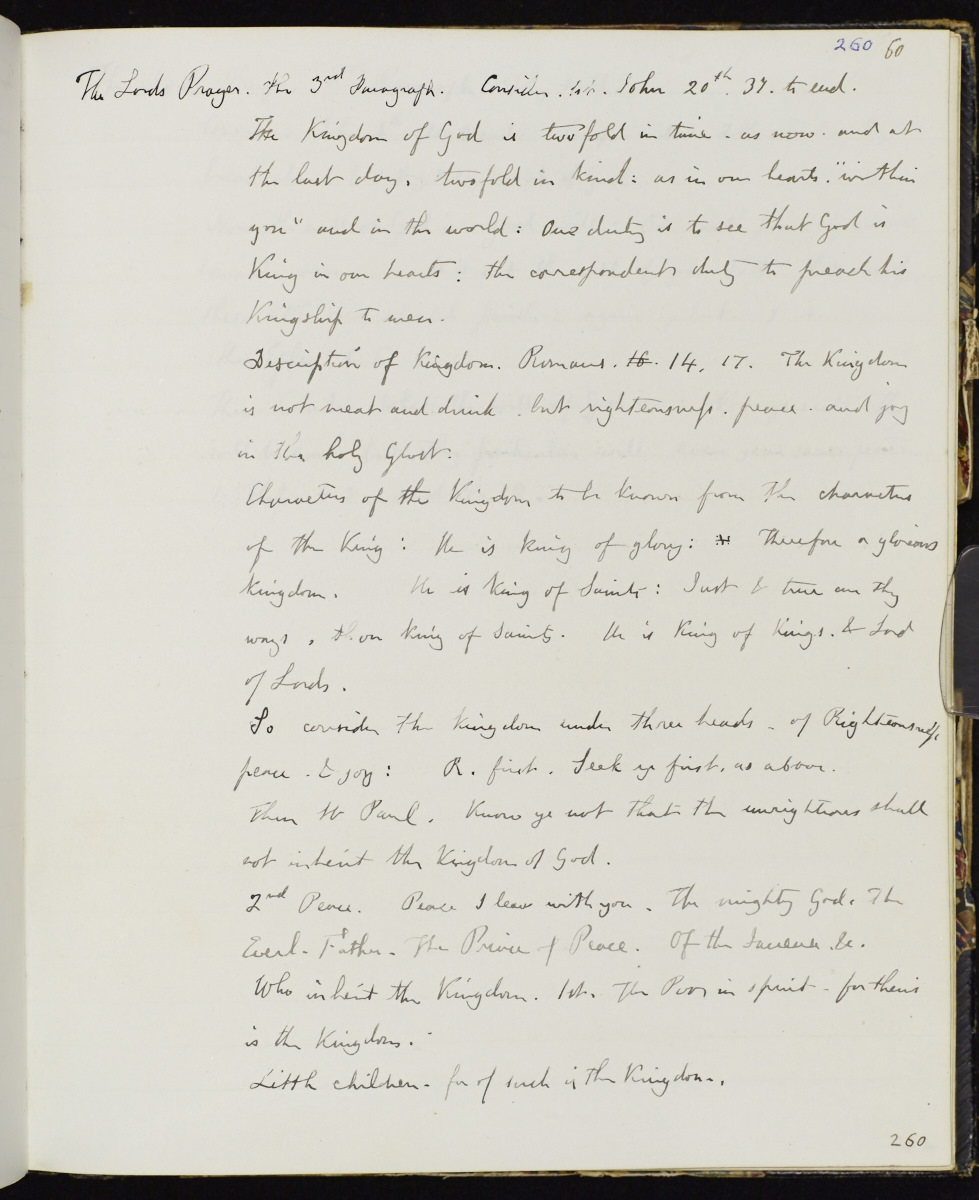 260 60
The Lords Prayer. the 3rd Paragraph. Consider. 1st. John 20th. 37. to end.
The Kingdom of God is twofold in time - as now. and at
the last day. twofold in kind: as in our hearts. "within
you" and in the world: One duty is to see that God is
King in our hearts: the correspondent duty to preach his
Kingship to men.
Description of Kingdom. Romans. 16. 14, 17. The Kingdom
is not meat and drink. but righteousness. peace. and joy
in the holy Ghost:
Characters of the Kingdom to be known from the characters
of the King: He is king of glory: Therefore a glorious
kingdom. He is King of Saints: Just & true are thy
ways, thou King of Saints. He is King of Kings. & Lord
of Lords.
So consider the kingdom under three heads - of Righteousness,
peace. & joy: R. first. Seek ye first, as above.
Then St Paul. Know ye not that the unrighteous shall
not inherit the Kingdom of God.
2nd Peace. Peace I leave with you. The mighty God. The
Everl. Father. The Prince of Peace. Of the Increase &c.
Who inherit the Kingdom. 1st. The Poor in spirit - for theirs
is the Kingdom.
Little children - for of such is the Kingdom.
260